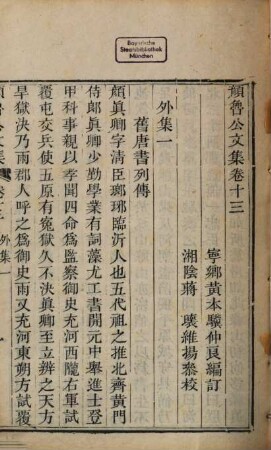 Bayerische
Staatsbibliothek
München
顏魯公文集卷十三
寧鄉黃本驥仲良編訂
湘陰蔣瓌維揚叅校
外集一
舊唐書列傳
顏眞卿字淸臣瑯琊臨沂人也五代祖之推北齊黃門
侍郎眞卿少勤學業有詞藻尤工書開元中舉進士登
甲科事親以孝聞四命爲監察御史充河西隴右軍試
覆屯交兵使五原有寃獄久不決眞卿至立辨之天方
旱獄決乃雨郡人呼之爲御史雨又充河東朔方試覆
顏魯公文集 卷十三 外集一